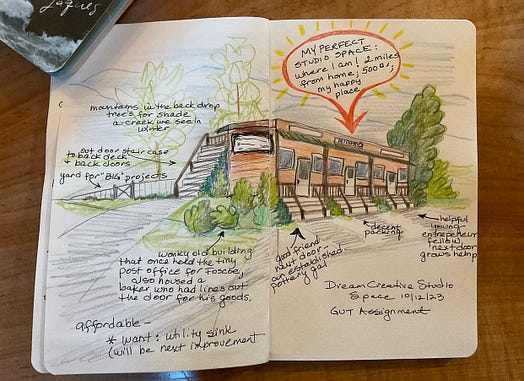 Jaques
MY PERFECT
STUDIO SPACE:
where I am! 2 miles
from home; 500 [];
my happy
place
mountains in the back drop
trees for shade
a creek we see in
winter
out door staircase
to back deck
+ back doors
yard for "BIG" projects
wonky old building
that once held the tiny
post office for Foscoe,
also housed a
baker who had lines out
the door for his goods.
good friend
next door -
an established
pottery gal
decent
parking
helpful
young
entrepreneur
fellow
next door
grows hemp
Dream Creative Studio
Space 10/12/23
GUT Assignment
affordable -
* want: utility sink
(will be next improvement